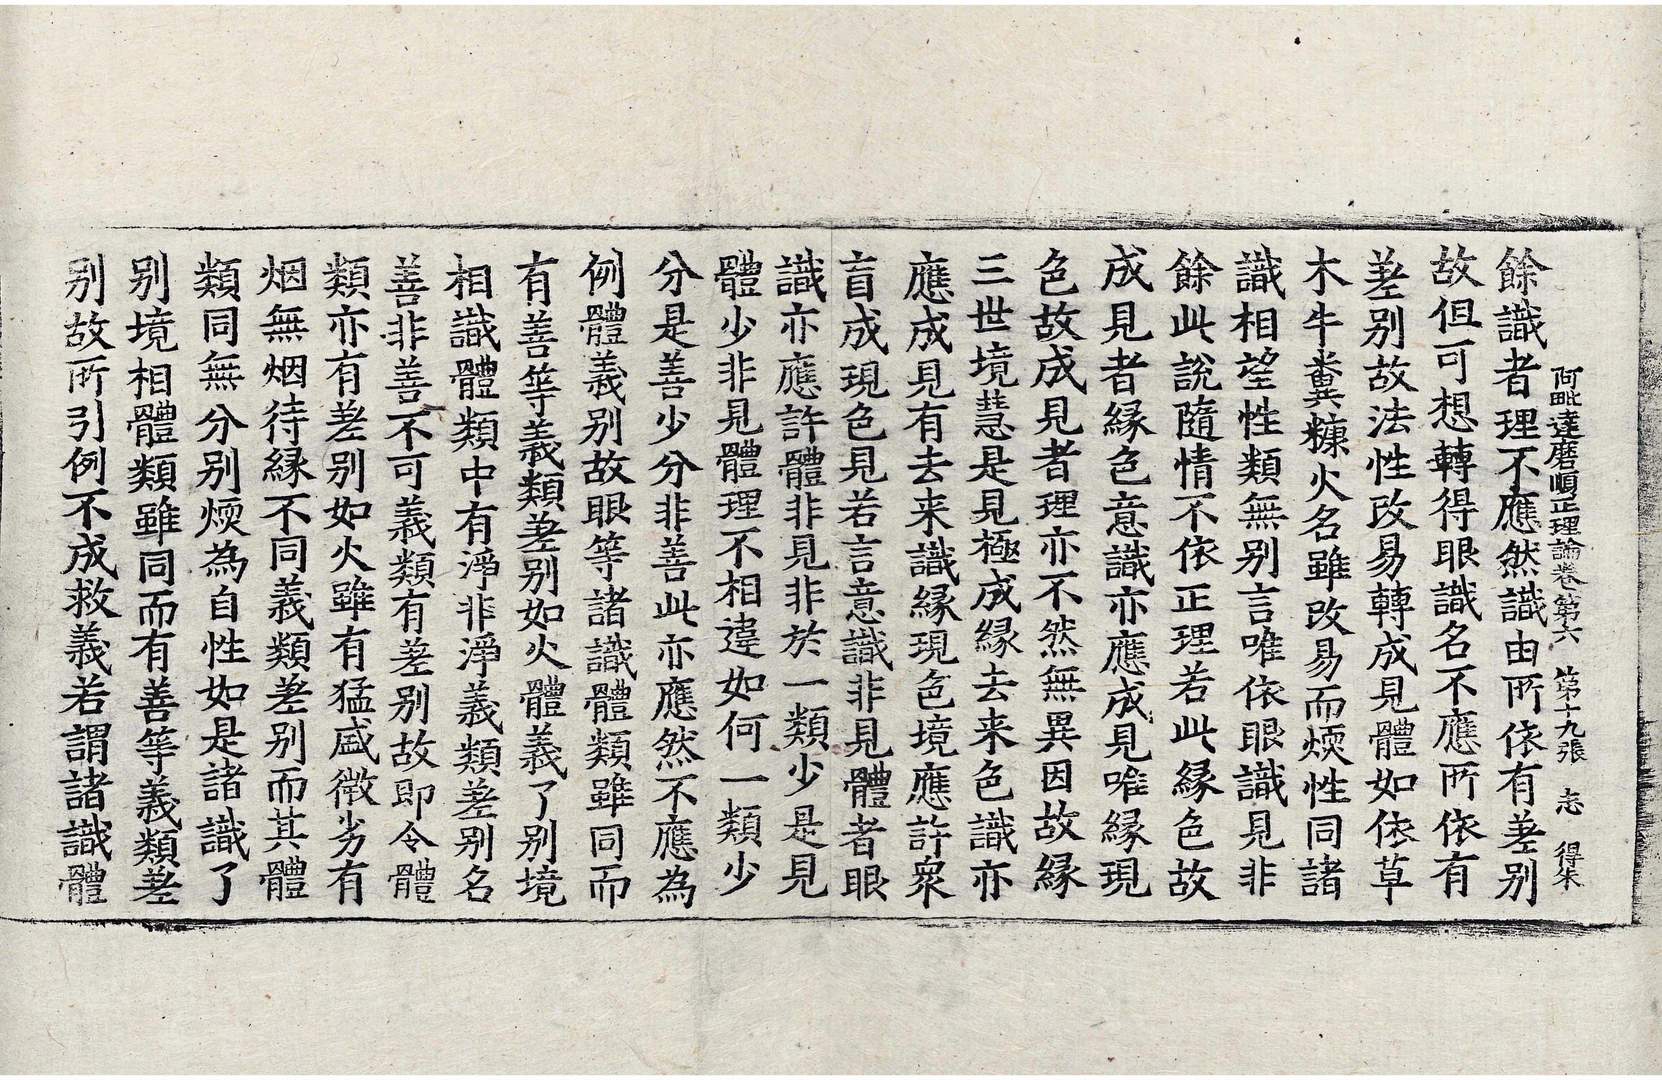 阿毗達磨順正理論卷第六　第十九張　志　得朱
餘識者理不應然識由所依有差别
故但可想轉得眼識名不應所依有
差别故法性改易轉成見體如依草
木牛糞糠火名雖改易而煗性同諸
識相望性類無别言唯依眼識見非
餘此說隨情不依正理若此緣色故
成見者緣色意識亦應成見唯緣現
色故成見者理亦不然無異因故緣
三世境慧是見極成緣去来色識亦
應成見有去来識緣現色境應許衆
盲成現色見若言意識非見體者眼
識亦應許體非見非於一類少是見
體少非見體理不相違如何一類少
分是善少分非善此亦應然不應為
例體義别故眼等諸識體類雖同而
有善等義類差别如火體義了别境
相識體類中有淨非淨義類差别名
善非善不可義類有差别故即令體
類亦有差别如火雖有猛盛微劣有
烟無烟待緣不同義類差别而其體
類同無分别煗為自性如是諸識了
别境相體類雖同而有善等義類差
别故所引例不成救義若謂諸識體